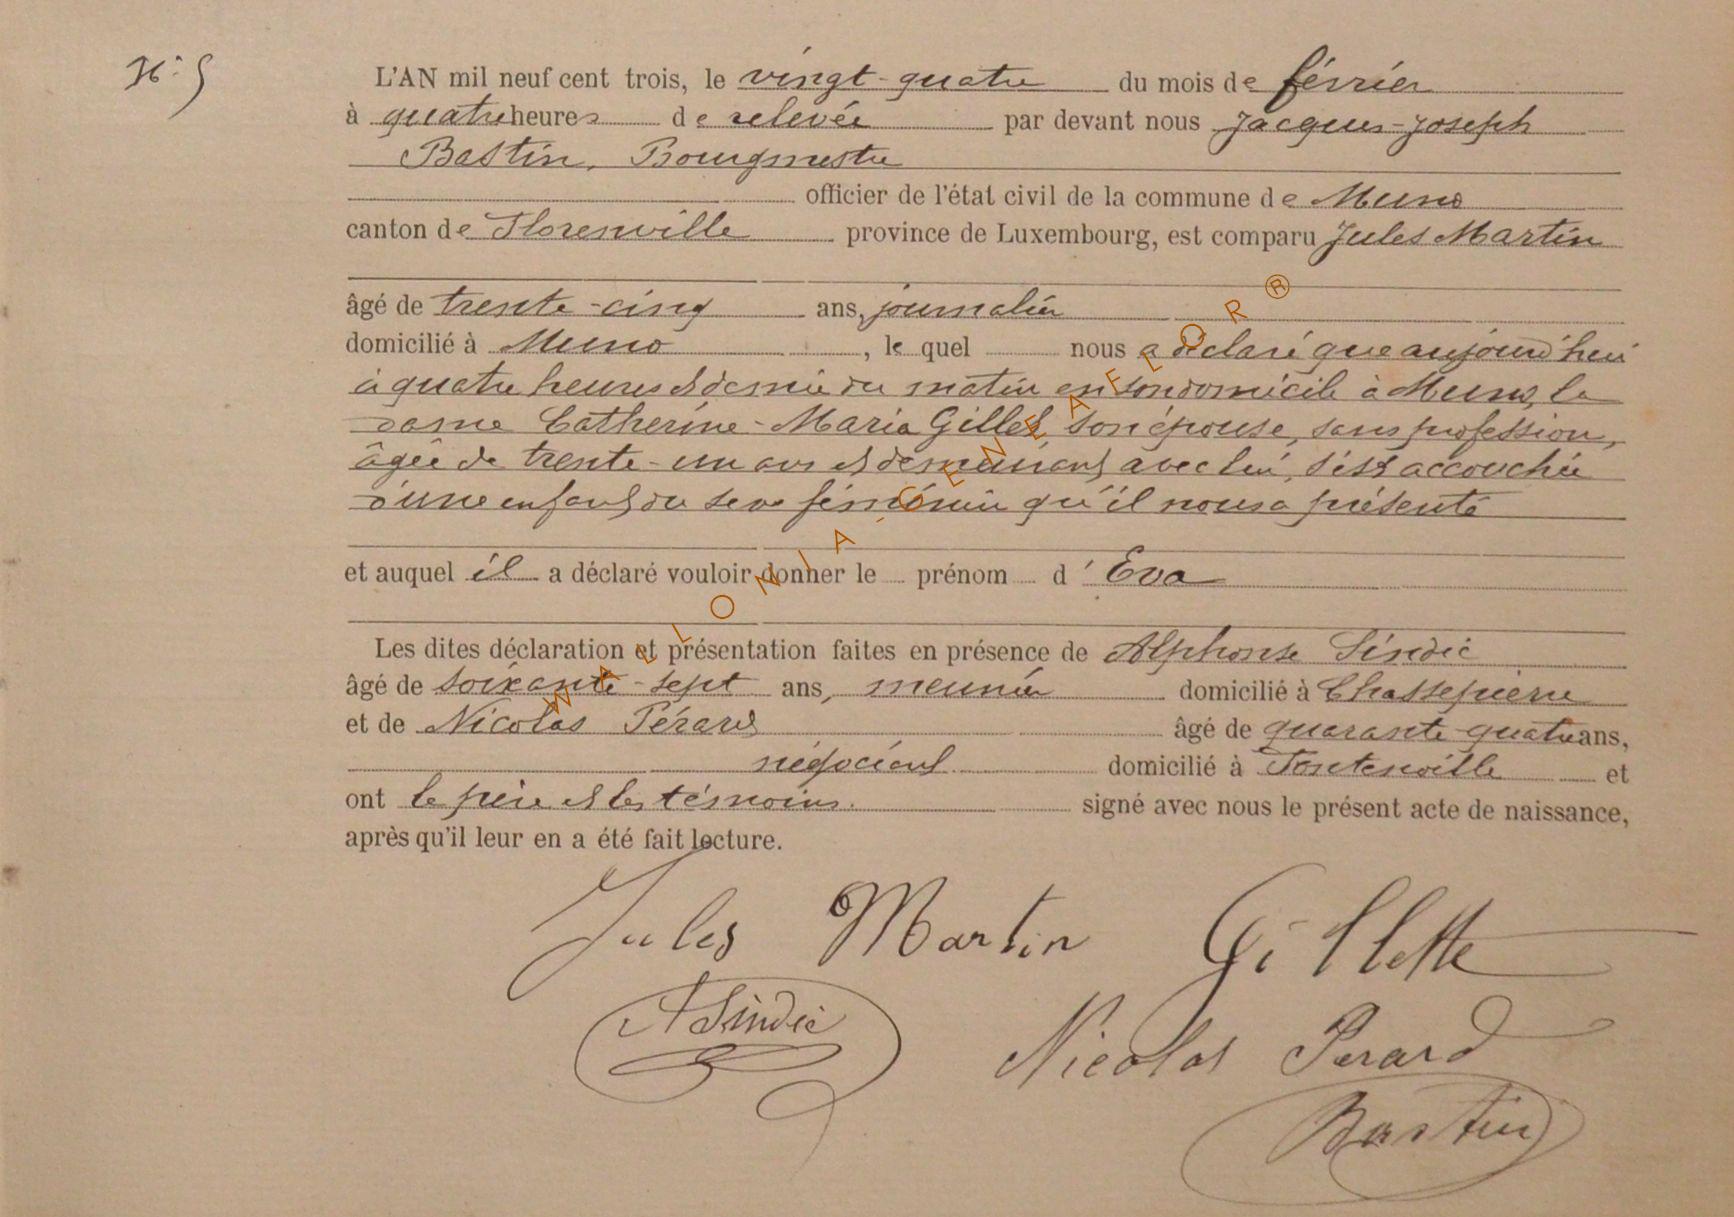 N° 5
L'AN mil neuf cent trois, le vingt-quatre du mois de février
à quatre heures de relevée par devant nous Jacques-Joseph
Bastin, Bourgmestre
officier de l'état civil de la commune de Muno
canton de Florenville province de Luxembourg, est comparu Jules Martin
âgé de trente-cinq ans, journalier
domicilié à Muno, lequel nous a déclaré que aujourd'hui
à quatre heures et demie du matin en son domicile à Muno, la
dame Catherine-Maria Gillet, son épouse, sans profession,
âgée de trente-un ans et demeurant avec lui, s'est accouchée
d'une enfant du sexe féminin qu'il nous a présenté
et auquel il a déclaré vouloir donner le prénom d'Eva
Les dites déclaration et présentation faites en présence de Alphonse Sindic
âgé de soixante-sept ans, meunier domicilié à Chassepierre
et de Nicolas Pérard âgé de quarante-quatre ans,
négociant domicilié à Fontenoille et
ont le père et les témoins signé avec nous le présent acte de naissance,
après qu'il leur en a été fait lecture.
Jules Martin Gillette
A Sindic
Nicolas Perard
Bastin
WALLONIA-GENEAFLOR ®